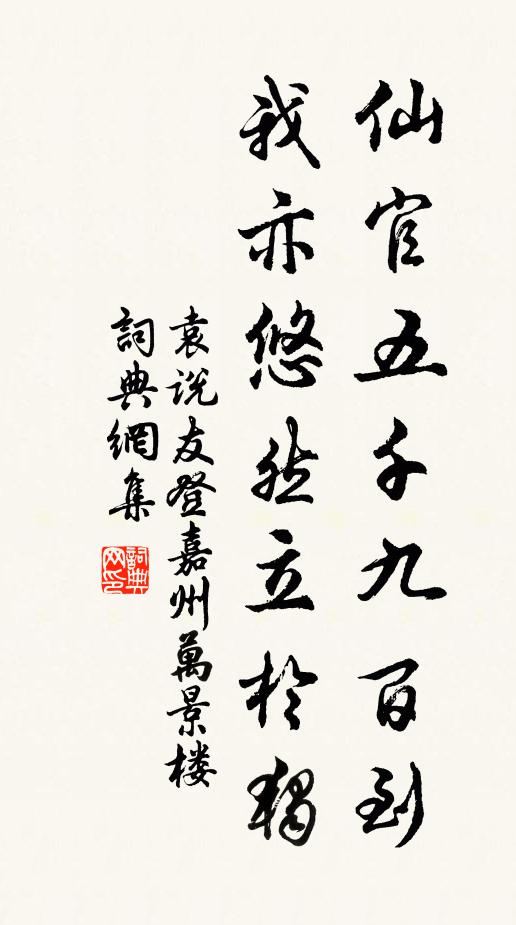 仙官五千九百到
我亦悠然立於獨
袁说友登嘉州萬景楼
詞典網集
詞典网印